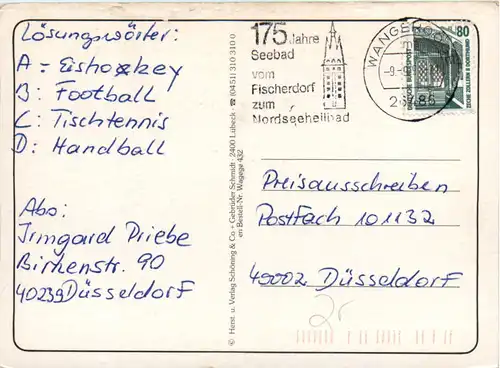 Lösungswörter:
A = Eishockey
B: Football
C: Tischtennis
D: Handball
Abs:
Irmgard Priebe
Birkenstr. 90
40239 Düsseldorf
© Herst. u. Verlag Schöning & Co + Gebrüder Schmidt · 2400 Lübeck · ☎ (0451) 310 310 0
en Bestell-Nr. Wagege 432
175 Jahre
Seebad
vom
Fischerdorf
zum
Nordseeheilbad
80
DEUTSCHE BUNDESPOST
ZECHE ZOLLERN II DORTMUND
Preisausschreiben
Postfach 101132
40002 Düsseldorf